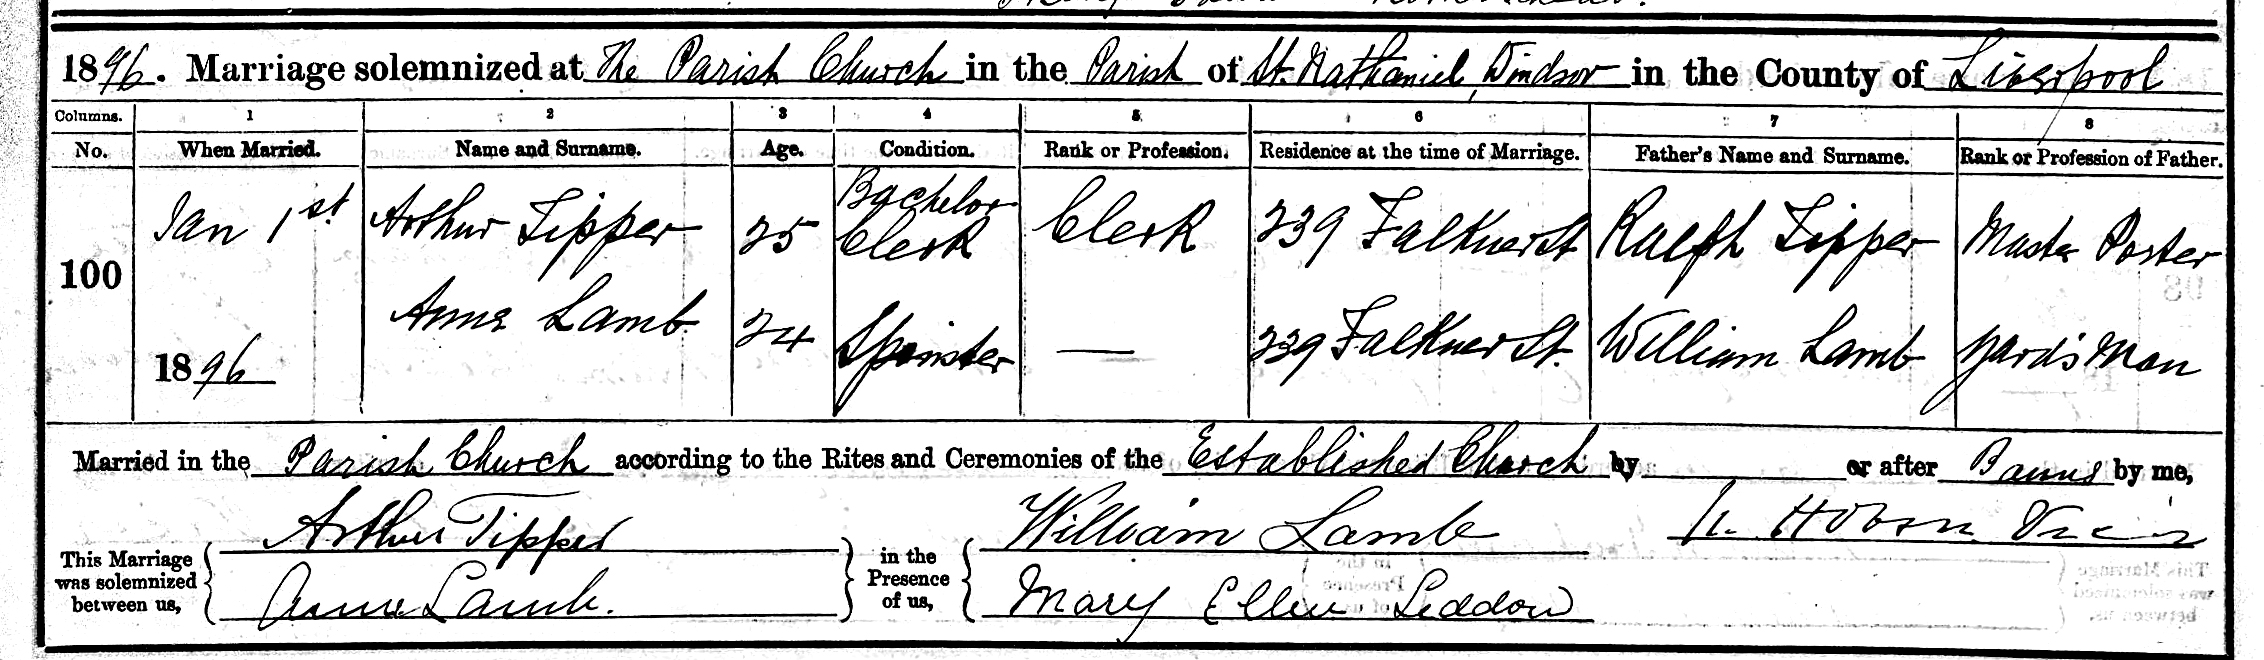 1896. Marriage solemnized at The Parish Church in the Parish of St. Nathaniel, Windsor in the County of Liverpool
Columns. 1 2 3 4 5 6 7 8
No. When Married. Name and Surname. Age. Condition. Rank or Profession. Residence at the time of Marriage. Father's Name and Surname. Rank or Profession of Father.
100 Jan 1st Arthur Tipper 25 Bachelor Clerk Clerk 239 Falkner St Ralph Tipper Master Porter
1896 Anne Lamb 24 Spinster — 239 Falkner St. William Lamb Yards Man
Married in the Parish Church according to the Rites and Ceremonies of the Established Church by or after Banns by me,
This Marriage was solemnized between us, Arthur Tipper in the Presence of us, William Lamb Hobson Vicar
Anne Lamb. Mary Ellen Leddon